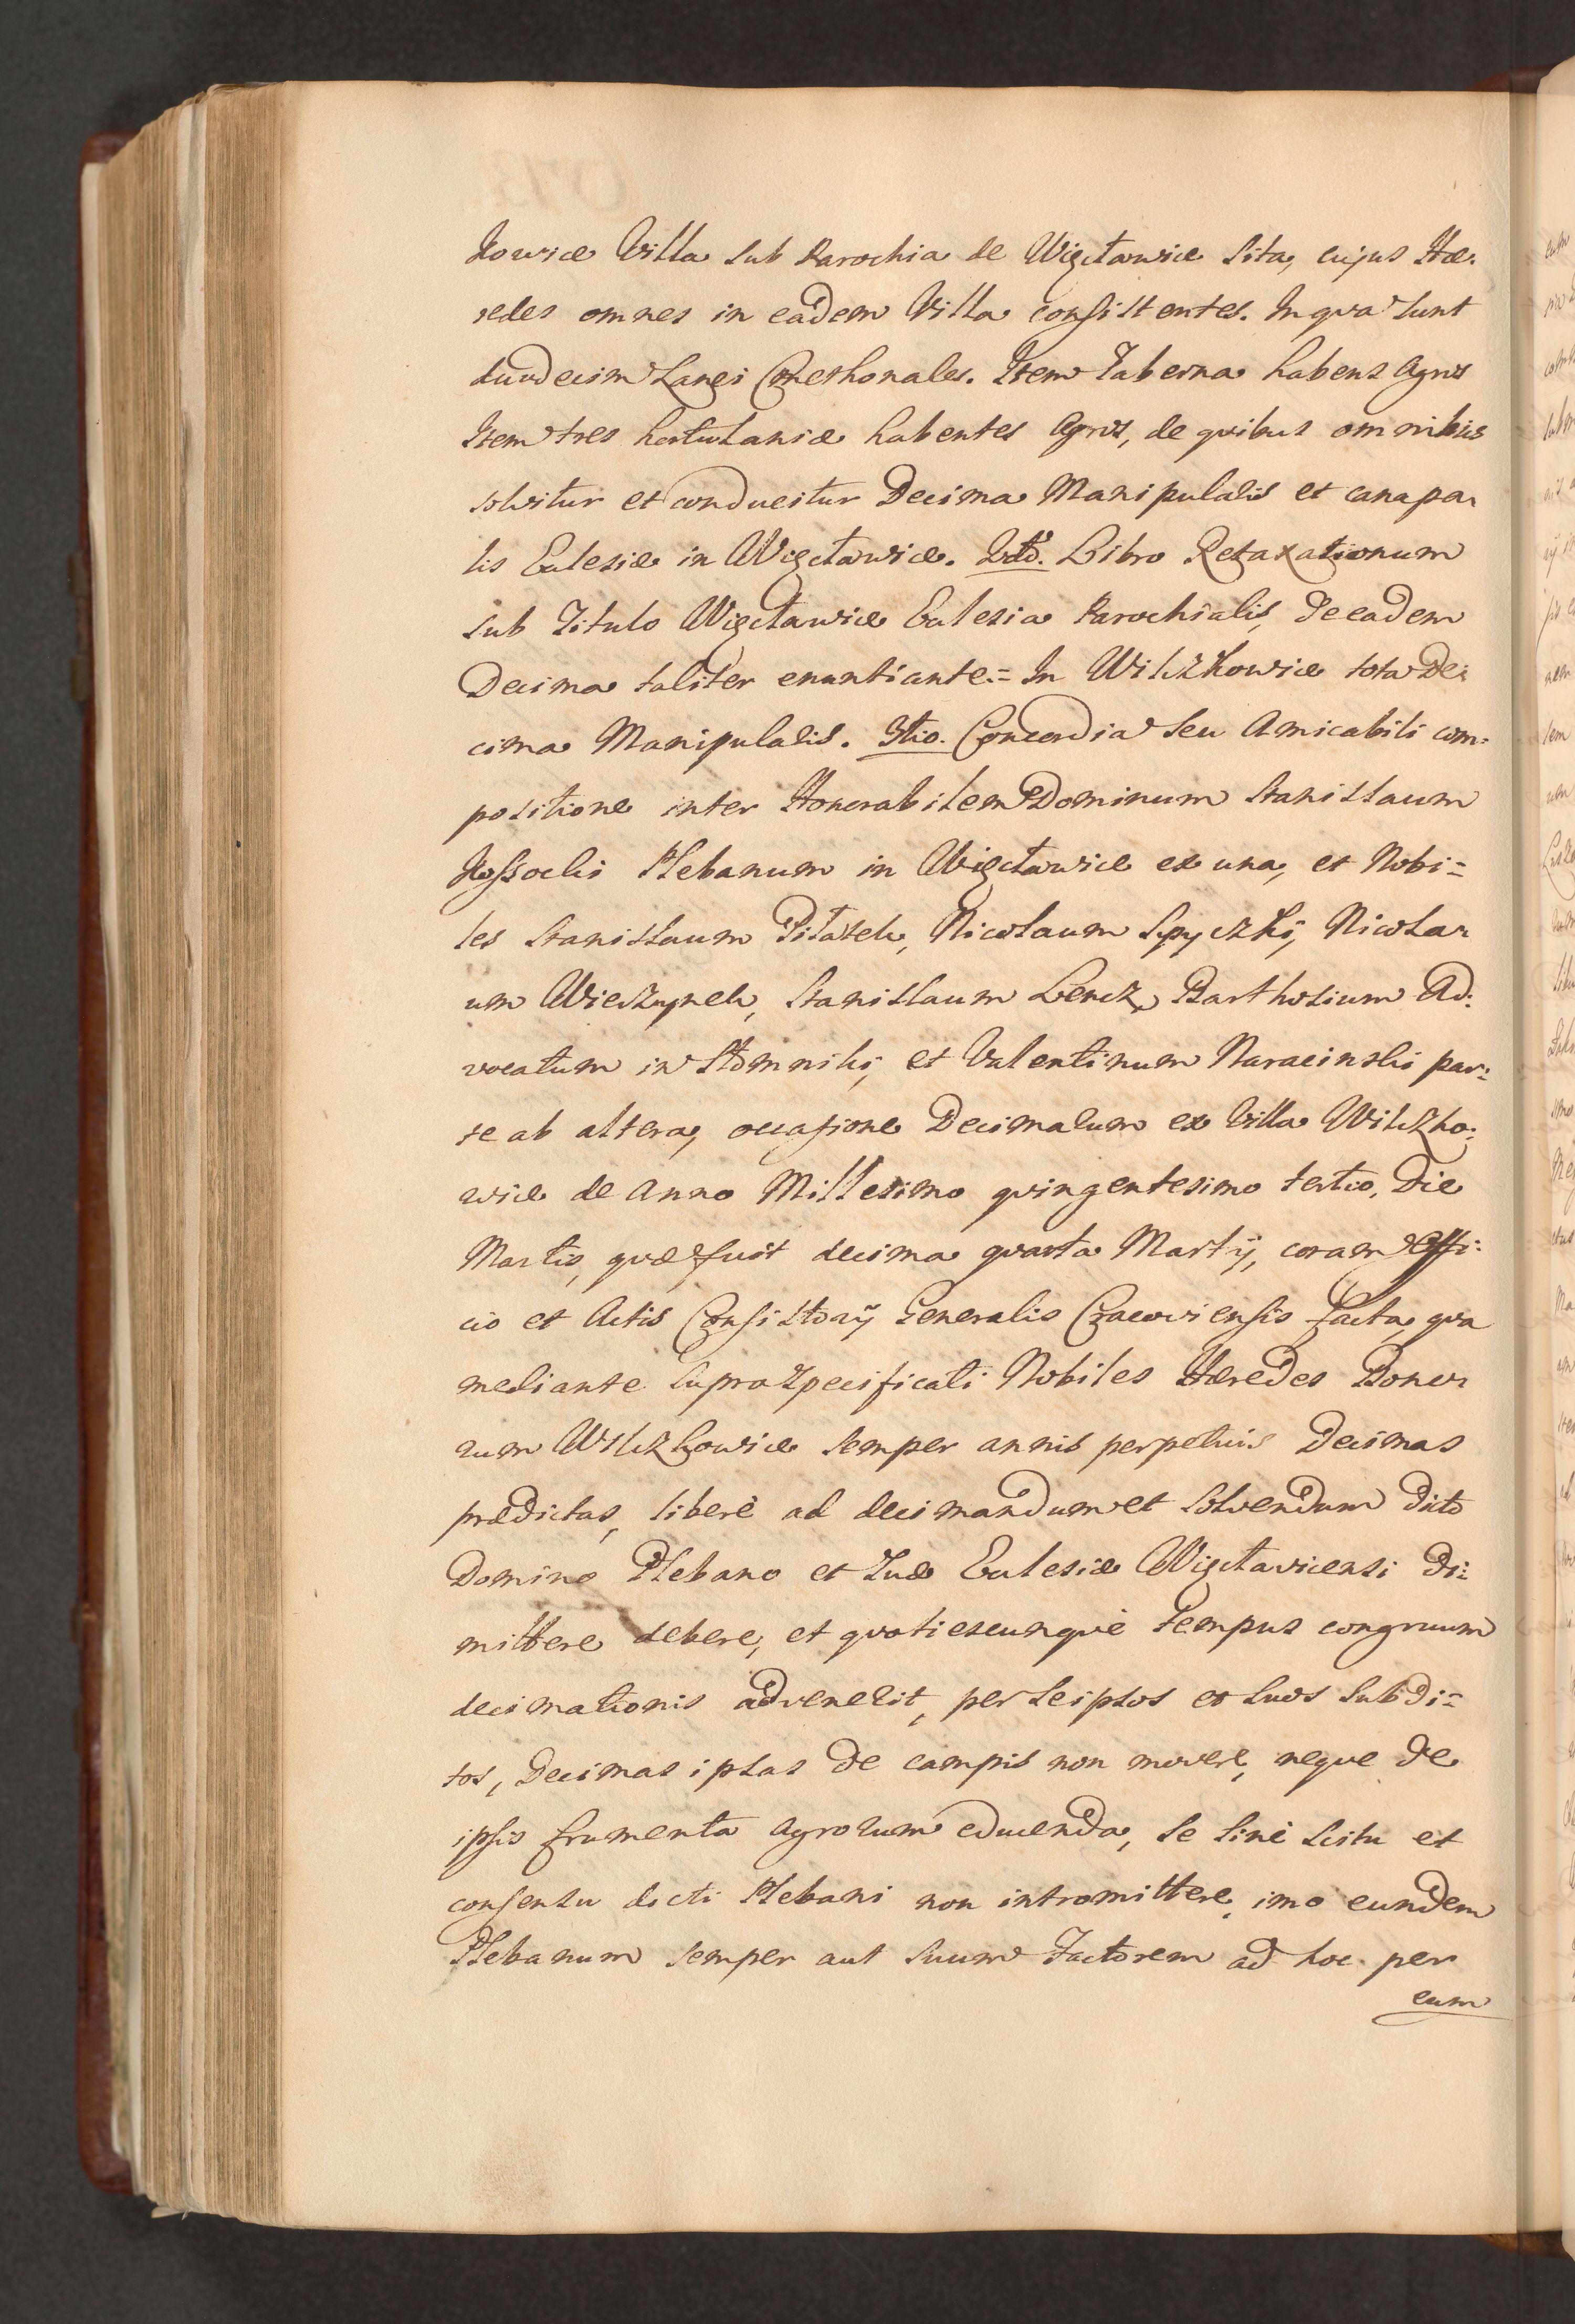 kowice Villa sub Parochia de Więcławice sita, cujus Hæ-
redes omnes in eadem Villa consistentes. In qva sunt
duodecim Lanei Cmethonales. Item Taberna habens Agros
Item tres hortulaniæ habentes Agros, de qvibus omnibus
solvitur et conducitur Decima Manipularis et canapa-
lis Eclesiæ in Więcławice. 2do. Libro Retaxationum
sub Titulo Więcławice Eclesia Parochialis, de eadem
Decima taliter enuntiante = In Wilczkowice tota De-
cima Manipularis. 3tio. Concordia seu Amicabili com-
positione inter Honorabilem Dominum Stanislaum
Kossocki Plebanum in Więcławice ex una, et Nobi=
les Stanislaum Pilatek, Nicolaum Spyczki, Nicola-
um Wieszynek, Stanislaum Lencz, Bartholium Ad-
vocatum in Słomniki, et Valentinum Naracinski par-
te ab altera, occasione Decimalum ex Villa Wilczko-
wice de Anno Millesimo qvingentesimo tertio, Die
Martis, qvæ fuit decima qvarta Martij, coram Offi-
cio et Actis Consistorij Generalis Cracoviensis facta, qva
mediante supra specificati Nobiles Hæredes Bono-
rum Wilczkowice semper annis perpetuis Decimas
prædictas, liberè ad decimandum et solvendum dicto
Domino Plebano et suæ Eclesiæ Więcławicensi di-
mittere debere, et qvotiescunqvè tempus congruum
decimationis advenerit, per seipsos et suos subdi=
tos, Decimas ipsas de campis non movere, neqve de
ipsis frumenta agrorum educenda, se sinè scitu et
consensu dicti Plebani non intromittere, imo eundem
Plebanum semper aut suum Factorem ad hoc per
eum